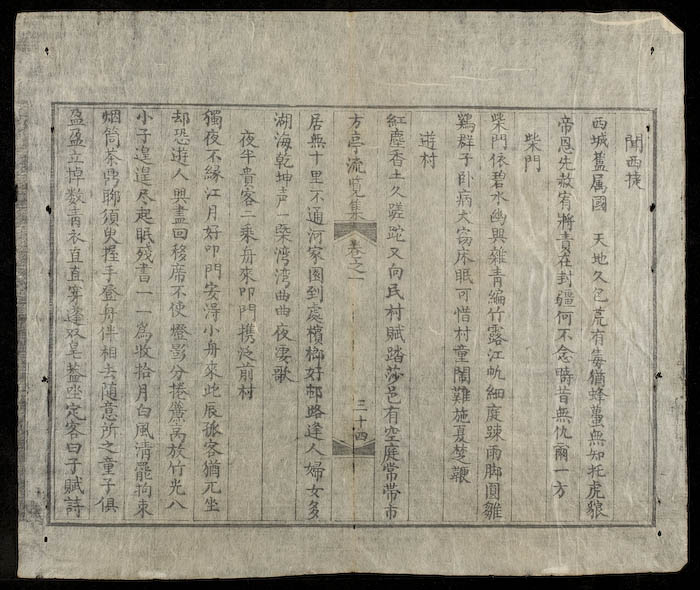 聞西捷
西城舊属國 天地久包荒有毒猶蜂蠆無知托虎狼
帝恩先赦宥將責在封疆何不念疇昔無仇爾一方
柴門
柴門依碧水幽興雜青編竹露江帆細度踈雨脚圓雛
鷄群子卧病犬窃床眠可惜村童閙難施夏楚鞭
遊村
紅塵香土久蹉跎又向民村賦踏莎邑有空庭常带市
方亭流覧集 卷之一 三十四
居無十里不通河家園到處檳榔好邨路逢人婦女多
湖海乾坤声一槩湾湾曲曲夜淒歌
夜半貴客二乘舟來叩門携泛前村
獨夜不緣江月好叩門安得小舟來此辰孤客猶兀坐
却恐遊人興盡回移席不使燈影分捲簾高放竹光入
小子遑遑尽起眠残書一一爲收拾月白風清罷拘束
烟筒茶鼎聊須臾握手登舟伴相去随意所之童子俱
盈盈立棹数青衣直直穿蓬双皂蓋坐定客曰子賦詩